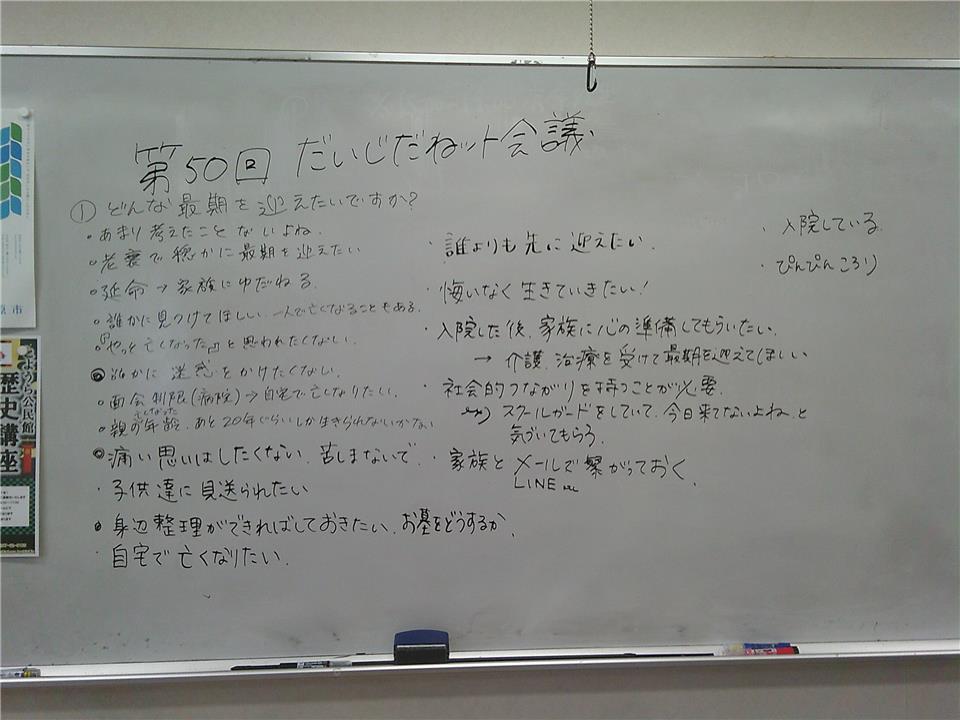 第50回 だいじだねット会議
① どんな最期を迎えたいですか?
・あまり考えたことないよね.
・老衰で穏かに最期を迎えたい
・延命→家族にゆだねる.
・誰かに見つけてほしい. 一人で亡くなることもある.
・『やっと亡くなった』と思われたくない.
◎誰かに迷惑をかけたくない.
・面会制限(病院)→自宅で亡しなりたい.
亡しなった
・親の年齢. あと20年ぐらいしか生きられないかな
◎痛い思いはしたくない. 苦しまないで.
・子供達に見送られたい
・身辺整理ができればしておきたい. お墓をどうするか.
・自宅で亡くなりたい.
・誰よりも先に迎えたい.
・悔いなく生きていきたい!
・入院した後、家族に心の準備してもらいたい.
→ 介護. 治療を受けて最期を迎えてほしい
・社会的つながりを持つことが必要.
スクールガードをしていて、今日来てないよね。と
気づいてもらう.
・家族とメールで繋がっておく.
LINE etc
・入院している.
・ぴんぴんころり
原市
公民館
歴史講座